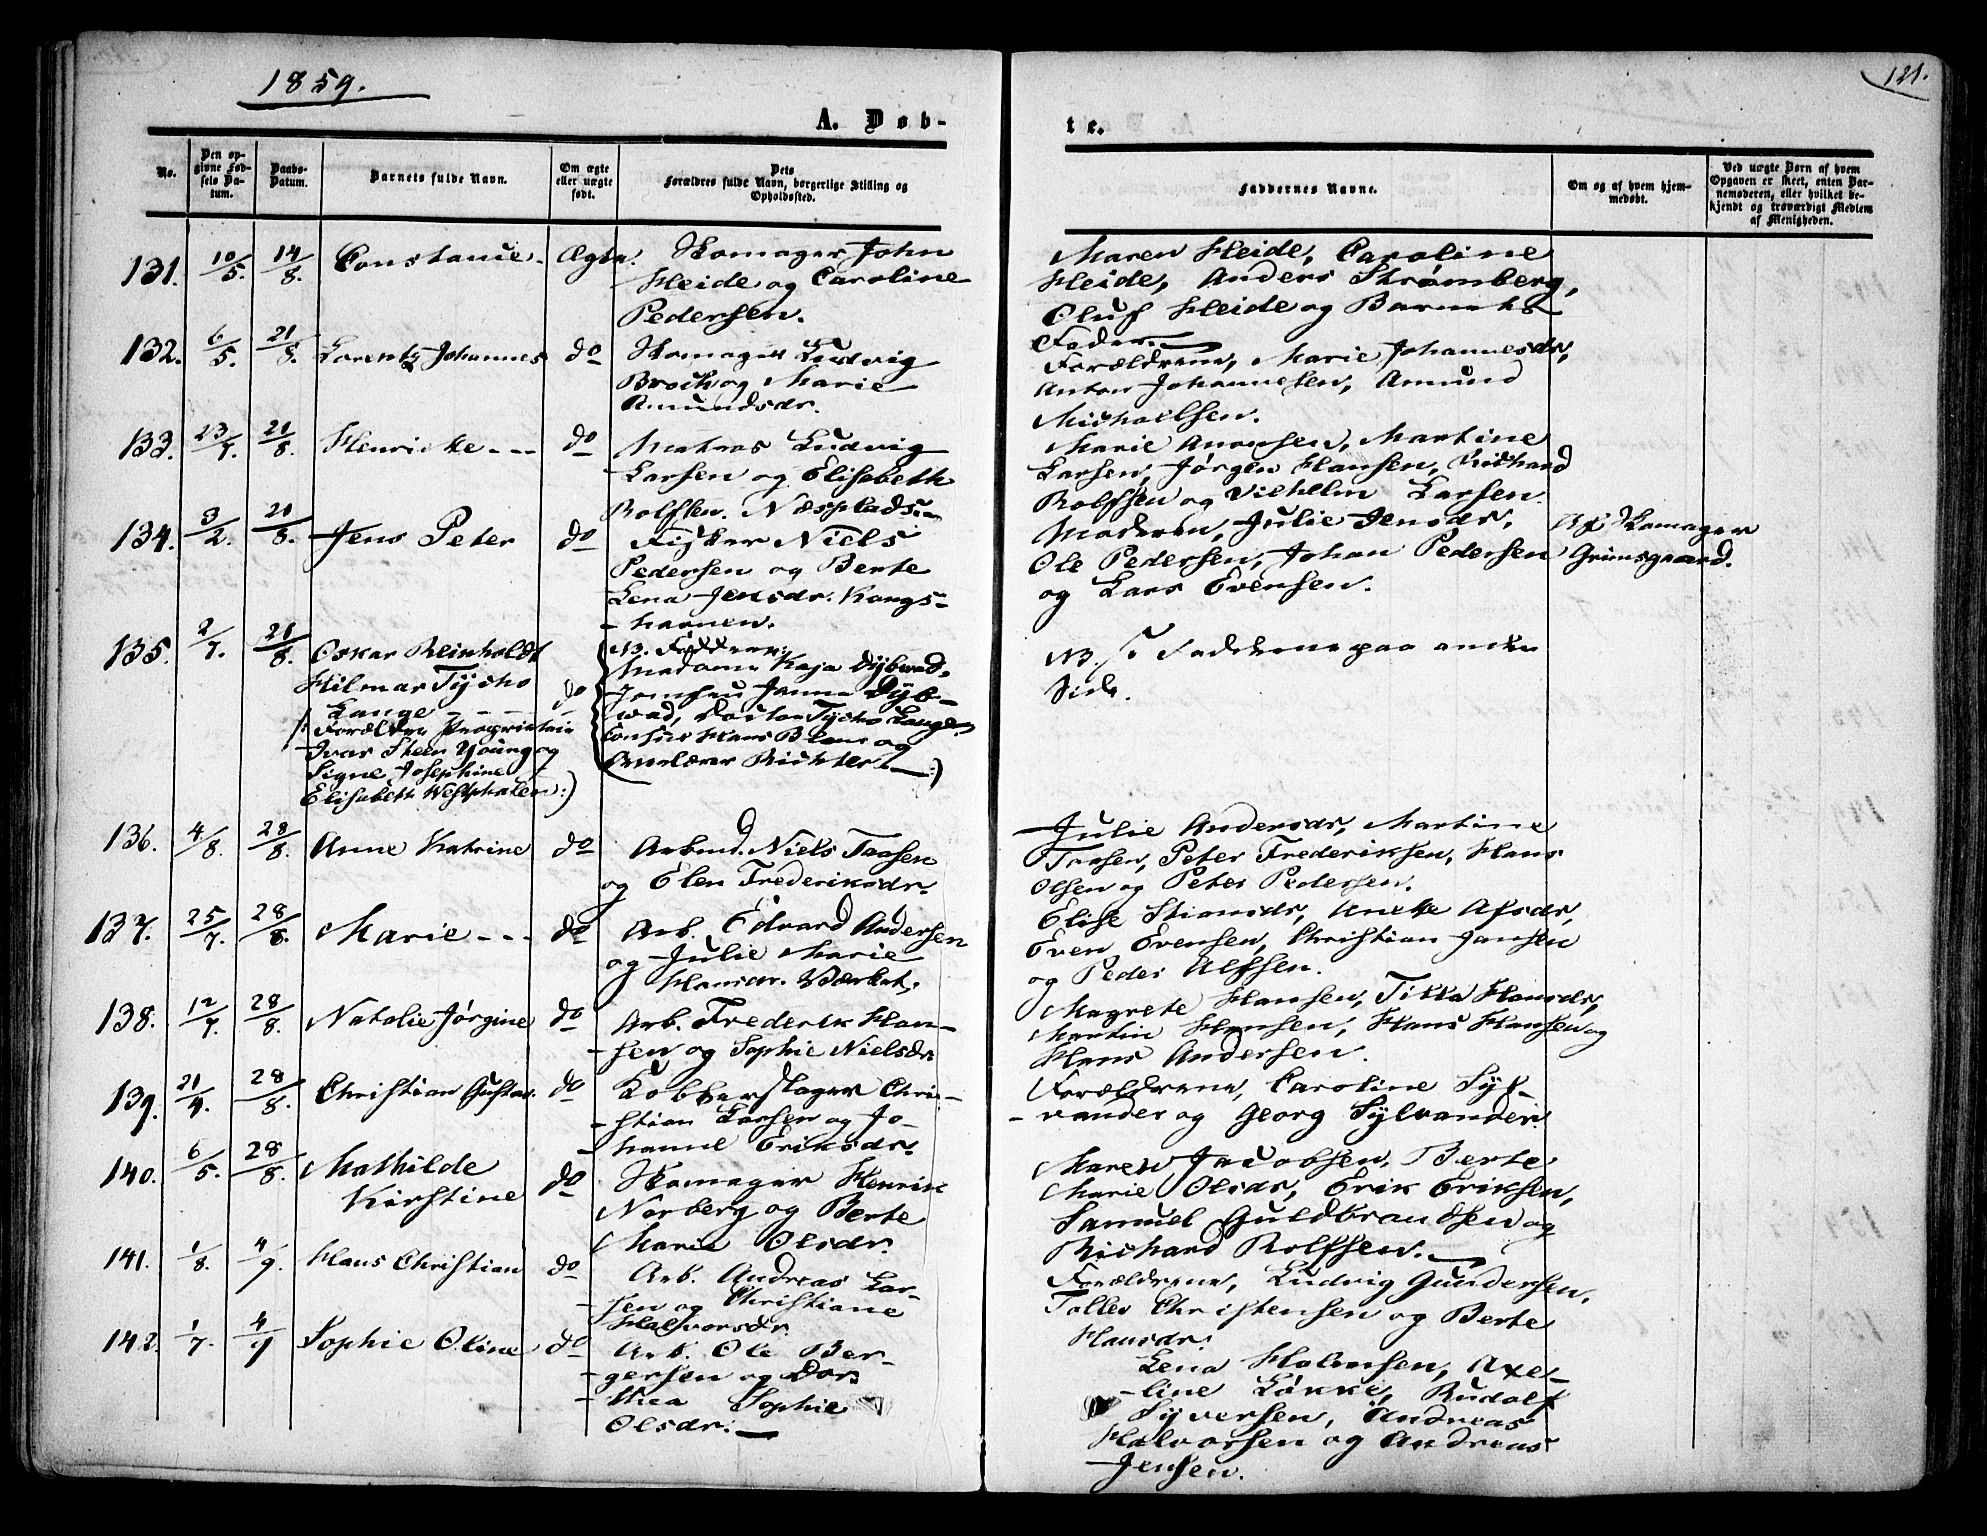 1859.
121.
A. Døb-
te.
No.
Den op-
givne Fød-
sels Da-
tum.
Daabs-
Datum.
Barnets fulde Navn.
Om ægte
eller uægte
født.
Dets
Forældres fulde Navn, borgerlige Stilling og
Opholdssted.
Faddernes Navne.
Om og af hvem hjem-
medøbt.
Ved uægte Børn af hvem
Opgaven er skeet, enten Bar-
nemoderen, eller hvilket be-
kjendt og troværdigt Medlem
af Menigheden.
131. 10/5. 14/8. Constance. Ægte. Skomager John
Heide og Caroline
Pedersen.
Maren Heide, Caroline
Heide, Anders Strømberg,
Oluf Heide og Barnets
Fader.
132. 6/5. 21/8. Lorentz Johannes do Skomager Ludvig
Broch og Marie
Amundsdr.
Forældrene, Marie Johannesdr,
Anton Johannesen, Amund
Michaelsen.
133. 23/7. 21/8. Henrikke - - - do Matros Ludvig
Larsen og Elisabeth
Rolfsen. Næsplads.
Marie Aronsen, Martine
Larsen, Jørgen Hansen, Richard
Rolfsen og Vilhelm Larsen.
134. 3/2. 21/8. Jens Peter do Fisker Niels
Pedersen og Berte
Lena Jensdr. Kongs-
havnen.
Moderen, Julie Jensdr,
Ole Pedersen, Johan Pedersen
og Lars Evensen.
Af Skomager
Grimsgaard.
135. 2/7. 21/8. Oskar Reinholdt
Hilmar Tycho
Lange - - - do
(: Forældre: Proprietair
Ivar Steen Young og
Signe Josephine
Elisabeth Westphalen :)
(NB. Faddere:
Madame Kaja Dybwad,
Jomfru Janna Dyb-
wad, Doctor Tycho Lange,
Consul Hans Blom og
Overlærer Richter. :)
NB. Fadderne paa anden
Side.
136. 4/8. 28/8. Anne Katrine do Arbmd. Niels Taasen
og Elen Frederiksdr.
Julie Andersdr, Martine
Taasen, Peter Frederiksen, Hans
Olsen og Peter Pedersen.
137. 25/7. 28/8. Marie - - - do Arb. Edvard Andersen
og Julie Marie
Hansdr. Værket.
Elise Stiansdr, Anette Alfsdr,
Even Evensen, Christian Jansen
og Peder Alfsen.
138. 12/7. 28/8. Natalie Jørgine do Arb. Frederik Han-
sen og Sophie Nielsdr
Magrete Hansen, Tilla Hansdr,
Martin Hansen, Hans Hansen og
Hans Andersen.
139. 21/4. 28/8. Christian Gustav. do Kobberslager Chri-
stian Larsen og Jo-
hanne Eriksdr.
Forældrene, Caroline Syl-
vander og Georg Sylvander
140. 6/5. 28/8. Mathilde
Kirstine do Skomager Henrik
Norberg og Berte
Marie Olsdr.
Maren Jacobsen, Berte
Marie Olsdr, Erik Eriksen,
Samuel Guldbrandsen og
Richard Rolfsen.
141. 1/8. 4/9. Hans Christian do Arb. Andreas Lar-
sen og Christiane
Halvorsdr.
Forældrene, Ludvig Gundersen,
Tollev Christensen og Berte
Hansdr.
142. 1/7. 4/9 Sophie Oline do Arb. Ole Ber-
gersen og Doro
thea Sophie
Olsdr.
Lena Halvorsen, Axe-
line Løkke, Rudolf
Syversen, Andreas
Halvorsen og Andreas
Jensen.